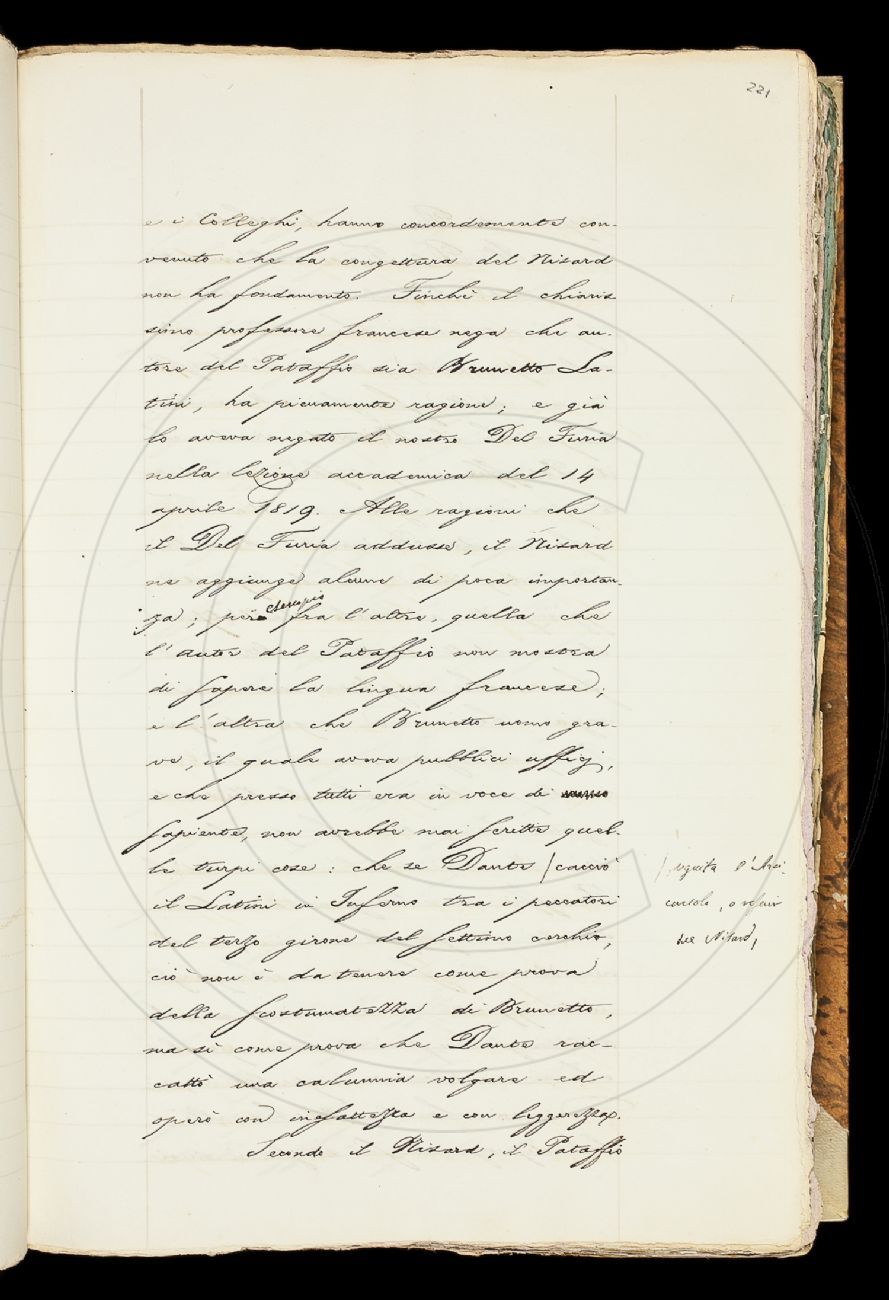 221
e i Colleghi, hanno concordemente con-
venuto che la congettura del Nisard
non ha fondamento. Finchè il chiaris
simo professore francese nega che au-
tore del Pataffio sia Brunetto La-
tini, ha pienamente ragione; e già
lo aveva negato il nostro Del Furia
nella lezione accademica del 14
aprile 1819. Alle ragioni che
il Del Furia addusse, il Nisard
ne aggiunge alcune di poca importan-
za; per esempio fra l'altre, quella che
l'autor del Pataffio non mostra
di sapere la lingua francese;
e l'altra che Brunetto uomo gra-
ve, il quale aveva pubblici ufficj,
e che presso tutti era in voce di
sapiente, non avrebbe mai scritte quel-
le turpi cose: che se Dante / cacciò
il Latini in Inferno tra i peccatori
del terzo girone del settimo cerchio,
ciò non è da tenere come prova
della scostumatezza di Brunetto,
ma sì come prova che Dante rac-
cattò una calunnia volgare ed
operò con e con leggerezza.
Secondo il Nisard, il Pataffio
/, seguita l'Arci-
consolo, a
del Nisard,